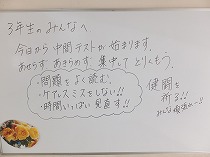 3年生のみんなへ
今日から中間テストが始まります。
あせらず あきらめず 集中してとりくもう。
・問題をよく読む。
・ケアレスミスをしない!!
・時間いっぱい見直す!!
健闘を
祈る!!
みんな頑張れ〜